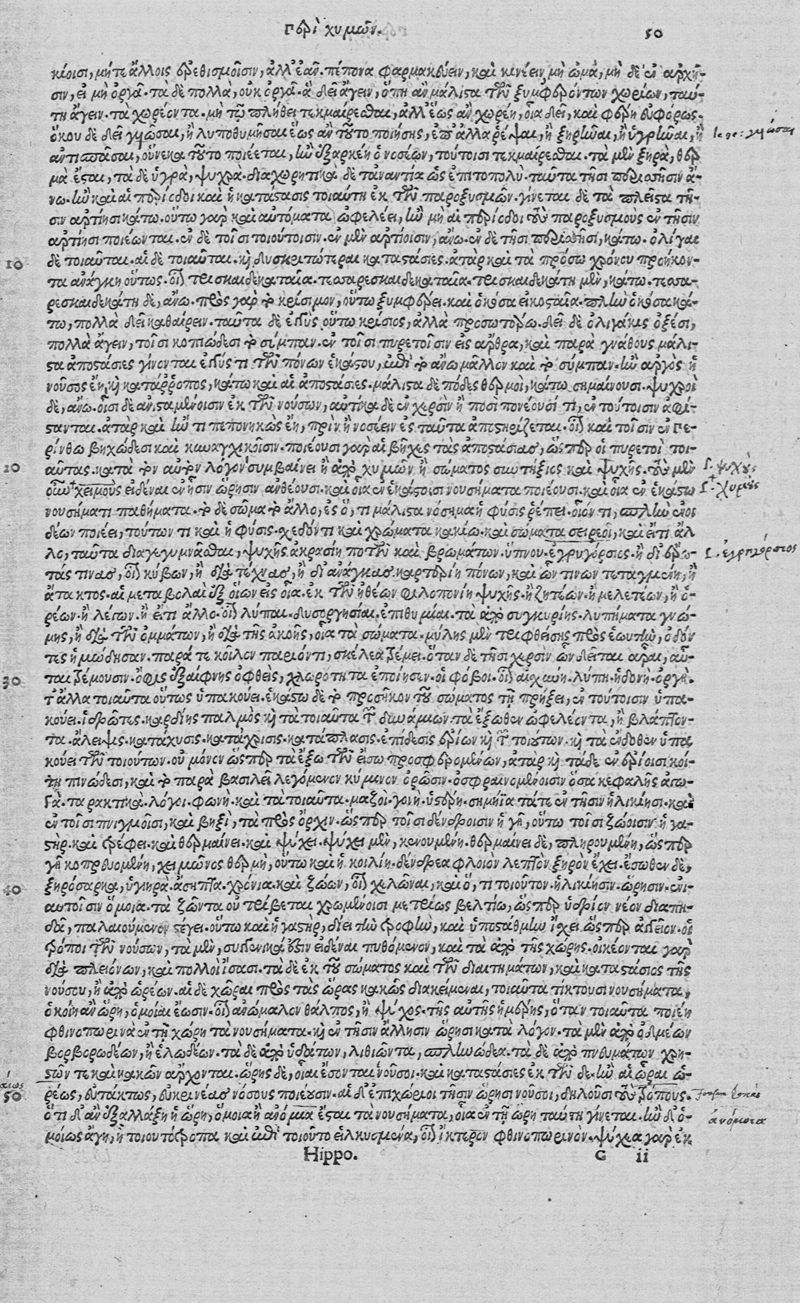 Περὶ χυμῶν. 50
κίοισι, μήτε ἄλλοις ἐρεθισμοῖσιν, ἀλλ' ἐᾶν. πέπονα φαρμακεύειν, καὶ κινέειν, μὴ ὠμὰ, μὴ δὲ ἐν ἀρχῇ-
σιν, εἰ μὴ ὀργᾷ. τὰ δὲ πολλὰ, οὐκ ὀργᾷ. ἃ δεῖ ἄγειν, ὅπη ἂν μάλιστα τῶν ξυμφερόντων χωρίων, ταύ-
τη ἄγειν. τὰ χωρέοντα. μὴ τῷ πλήθει τεκμαίρεσθαι, ἀλλ' ἕως ἂν χωρέη, οἷα δεῖ, καὶ φέρη εὐφόρως.
ὅκου δὲ δεῖ γυῶσαι, ἢ λυποθυμῆσαι ἕως ἂν τοῦτο ποιήσης, ἐπ' ἄλλα ῥέψαι, ἢ ξηρῶσαι, ἢ ὑγρῶσαι, ἢ
ἀντισπᾶσαι, οὕνεκα τοῦτο ποιέεται, ἢν ἐξαρκέη ὁ νοσέων, τούτοισι τεκμαίρεσθαι. τὰ μὲν ξηρὰ, θερ
μὰ ἔσται, τὰ δὲ ὑγρὰ, ψυχρά. διαχωρητικὰ δὲ τἀναντία ὡς ἐπιτοπολύ. ταῦτα τῆσι περισσῇσιν ἄ-
νω. ἢν καὶ αἱ περίοδοι καὶ ἡ κατάστασις τοιαύτη ἐκ τῶν παροξυσμῶν. γίνεται δὲ τὰ πλεῖστα τῇ-
σιν ἀρτίησι κάτω. οὕτω γὰρ καὶ αὐτόματα ὠφελέει, ἢν μὴ αἱ περίοδοι τοὺς παροξυσμοὺς ἐν τῇσιν
ἀρτίησι ποιέωνται. ἐν δὲ τοῖσι τοιούτοισιν. ἐν μὲν ἀρτίοισιν, ἄνω. ἐν δὲ τῇσι περισσῇσι, κάτω. ὀλίγαι
10 δὲ τοιαῦται. αἱ δὲ τοιαῦται. κὴ δυσκριτώτεραι καταστάσιες. ἀτὰρ καὶ τὰ πρόσω χρόνου προήκον-
τα ἀνάγκη οὕτως. οἷον τρισκαιδεκαταῖα. τεσσαρεσκαιδεκαταῖα. τρισκαιδεκάτη μὲν, κάτω. τεσσα-
ρεσκαιδεκάτη δὲ, ἄνω. πρὸς γὰρ τὸ κρίσιμον, οὕτω ξυμφέρει. καὶ ὁκόσα εἰκοσταῖα. πλὴν ὁκόσα κά-
τω, πολλὰ δεῖ καθαίρειν. ταῦτα δὲ ἐγγὺς οὕτω κρίσιος, ἀλλὰ προσωτέρω. δεῖ δὲ ὀλιγάκις ὀξέσι,
πολλὰ ἄγειν, τοῖσι κοπώδεσι τὸ σύμπαν. ἐν τοῖσι πυρετοῖσιν εἰς ἄρθρα, καὶ παρὰ γνάθους μάλι-
στα ἀποστάσιες γίνονται ἐγγύς τι τῶν πόνων ἑκάστου, ἐπὶ τὸ ἄνω μᾶλλον καὶ τὸ σύμπαν. ἢν ἀργὸς ἡ
νοῦσος ἔη, κὴ κατάρροπος, κάτω καὶ αἱ ἀποστάσιες. μάλιστα δὲ πόδες θερμοὶ, κάτω σημαίνουσι. ψυχροὶ
δὲ, ἄνω. οἷσι δὲ ἀνισταμένοισιν ἐκ τῶν νούσων, αὐτίκα δὲ ἐν χερσὶν ἢ ποσὶ πονέουσί τι, ἐν τούτοισιν ἀφί-
σανται. ἀτὰρ καὶ ἤν τι πεπονηκὼς ἔη, πρὶν ἢ νοσέειν ἐς ταῦτα ἀποστηρίζεται. οἷον καὶ τοῖσιν ἐν Πε-
ρίνθω βηχώδεσι καὶ κυναγχικοῖσιν. ποιέουσι γὰρ αἱ βῆχες τὰς ἀποστάσιας, ὥσπερ οἱ πυρετοὶ τοι-
20 αύτας. κατὰ τὸν αὐτὸν λόγον συμβαίνει ἢ ἀπὸ χυμῶν ἢ σώματος συντήξιος καὶ ψυχῆς. τοὺς μὲν
οὖν χειμοὺς εἰδέναι ἐν ᾗσιν ὥρησιν ἀνθέουσι. καὶ οἷα ἐν ἑκάστοισι νουσήματα ποιέουσι. καὶ οἷα ἐν ἑκάστω
νουσήματι παθήματα. τὸ δὲ σῶμα τὸ ἄλλο, ἐς ὅ, τι μάλιστα νόσημα ἡ φύσις ῥέπει. οἷόν τι, σπλὴν οἰ-
δέων ποιέει, τούτων τι καὶ ἡ φύσις. σχεδόν τι καὶ χρώματα κακίω. καὶ σώματα σειρεοὶ, καὶ ἔτι ἄλ
λο, ταῦτα διαγεγυμνάσθαι, ψυχῆς ἀκρασίη ποτῶν καὶ βρωμάτων. ὕπνου. ἐγρυγόρσιος. ἢ δι' ἔρω-
τάς τινας, οἷον κύβων, ἢ διὰ τέχνας, ἢ δι' ἀνάγκας καρτερίη πόνων, καὶ ὧν τινων τεταγμένη, ἢ
ἄτακτος. αἱ μεταβολαὶ ἐξ οἵων εἰς οἷα. ἐκ τῶν ἠθέων φιλοπονίη ψυχῆς. ἢ ζητέων. ἢ μελετέων, ἢ ὁ-
ρέων. ἢ λέγων. ἢ ἔτι ἄλλο. οἷον λύπαι. δυσοργησίαι. ἐπιθυμίαι. τὰ ἀπὸ συγκυρίης. λυπήματα γνώ-
μης, ἢ διὰ τῶν ὀμμάτων, ἢ διὰ τῆς ἀκοῆς, οἷα τὰ σώματα. μύλης μὲν τριφθείσης πρὸς ἑωυτὴν, ὀδόν
τες ᾑμώδησαν. παρά τε κοῖλον παριόντι, σκέλεα τρέμει. ὅταν δὲ τῇσι χερσὶν ὧν δεῖται αἴρῃ, αὗ-
30 ται τρέμουσιν. ὄφις ἐξαίφνης ὀφθεὶς, χλωρότητα ἐποίησεν. οἱ φόβοι. οἷον αἰσχύνη. λύπη. ἡδονή. ὀργή.
τ' ἄλλα τοιαῦτα οὕτως ὑπακούει. ἑκάστω δὲ τὸ προσῆκον τοῦ σώματος τῇ πρήξει, ἐν τούτοισιν ὑπα-
κούει. ἱδρῶτες. καρδίης παλμός. κὴ τὰ τοιαῦτα τῶν δυναμίων. τὰ ἔξωθεν ὠφελέοντα, ἢ βλάπτον-
τα. ἄλειψις. κατάχυσις. κατάχρισις. κατάπλασις. ἐπίδεσις ἐρίων κὴ τῶν τοιούτων. κὴ τὰ ἔνδοθεν ὑπα
κούει τῶν τοιούτων. οὐ μόνον ὥσπερ τὰ ἔξω τῶν εἴσω προσφερομένων, ἀτὰρ κὴ τάδε ἐν ἐρίοισι κοί-
τη πινώδεσι, καὶ τὸ παρὰ βασιλεῖ λεγόμενον κύμενον ὁρῶσιν. ὀσφραινομένοισιν ὅσα κεφαλῆς ἀγω-
γὰ. ταρακτικὰ. λόγοι. φωνὴ. καὶ τὰ τοιαῦτα. μαζοί. γονή. ὑστέρη. σημήϊα ταῦτα ἐν τῇσιν ἡλικίησι. καὶ
ἐν τοῖσι πνιγμοῖσι, καὶ βηξὶ, τὰ πρὸς ὄρχιν. ὥσπερ τοῖσι δένδροισιν ἡ γῆ, οὕτω τοῖσι ζώοισιν ἡ γα-
στὴρ. καὶ τρέφει. καὶ θερμαίνει. καὶ ψύχει. ψύχει μὲν, κενουμένη. θερμαίνει δὲ, πληρουμένη, ὥσπερ
γῆ κοπρευομένη, χειμῶνος θερμή, οὕτω καὶ ἡ κοιλίη. δένδρεα φλοιὸν λεπτὸν ξηρὸν ἔχει. ἔσωθεν δὲ,
40 ξηρόσαρκα, ὑγιηρὰ. ἄσηπτα. χρόνια. καὶ ζώων, οἷον χελῶναι, καὶ ὅ, τι τοιοῦτον. ἡλικίησιν. ὥρησιν. ἐνι-
αυτοῖσιν ὅμοια. τὰ ζῶντα οὐ τρίβεται χρωμένοισι μετρίως βελτίω, ὥσπερ ὑδρίον νέον διαπη-
δᾷ, παλαιούμενον στέγει. οὕτω καὶ ἡ γαστὴρ, διΐει τὴν τροφὴν, καὶ ὑποστάθμην ἴσχει ὥσπερ ἀγγεῖον. οἱ
τρόποι τῶν νούσων, τὰ μὲν, συγγενικὰ ἔστιν εἰδέναι πυθόμενον, καὶ τὰ ἀπὸ τῆς χώρης. οἰκέονται γὰρ
διὰ πλειόνων, καὶ πολλοὶ ἴσασι. τὰ δὲ ἐκ τοῦ σώματος καὶ τῶν διαιτημάτων, καὶ καταστάσιος τῆς
νούσου, ἢ ἀπὸ ὡρέων. αἱ δὲ χῶραι πρὸς τὰς ὥρας κακῶς διακείμεναι, τοιαῦτα τίκτουσι νουσήματα,
ὁκοίη ἂν ὥρη, ὁμοῖαι ἔωσιν. οἷον ἀνώμαλον θάλπος, ἢ ψύχος. τῆς αὐτῆς ἡμέρης, ὅταν τοιαῦτα ποιέη
φθινοπωρινὰ ἐν τῇ χώρη τὰ νουσήματα. κὴ ἐν τῇσιν ἄλλησιν ὥρησι κατὰ λόγον. τὰ μὲν ἀπὸ ὀδμέων
βορβορωδέων, ἢ ἑλωδέων. τὰ δὲ ἀπὸ ὑδάτων, λιθιῶντα, σπληνώδεα. τὰ δὲ ἀπὸ πνευμάτων χρη-
στῶν τε καὶ κακῶν ἄρχονται. ὥρης δὲ, οἷαι ἔσονται νοῦσοι. καὶ καταστάσιες ἐκ τῶν δε. ἢν αἱ ὧραι ὡ-
50 ρέως, εὐτάκτως, εὐκρινέας νόσους ποιέουσιν. αἱ δ' ἐπιχώριοι τῇσιν ὥρησι νοῦσοι, δηλοῦσι τοὺς τρόπους.
ὅ τι δ' ἂν ἐξαλλάξη ἡ ὥρη, ὅμοια ἢ ἀνόμια ἔσται τὰ νουσήματα, οἷα ἐν τῇ ὥρη ταύτη γίνεται. ἢν δ' ὁ-
μοίως ἄγη, ἢ τοιουτότροπα καὶ ἐπὶ τοιοῦτο εἱλκυσμένα, οἷον ἴκτερον φθινοπωρινόν. ψύχεα γὰρ ἐκ
Hippo. G ii
ἀνόμοια